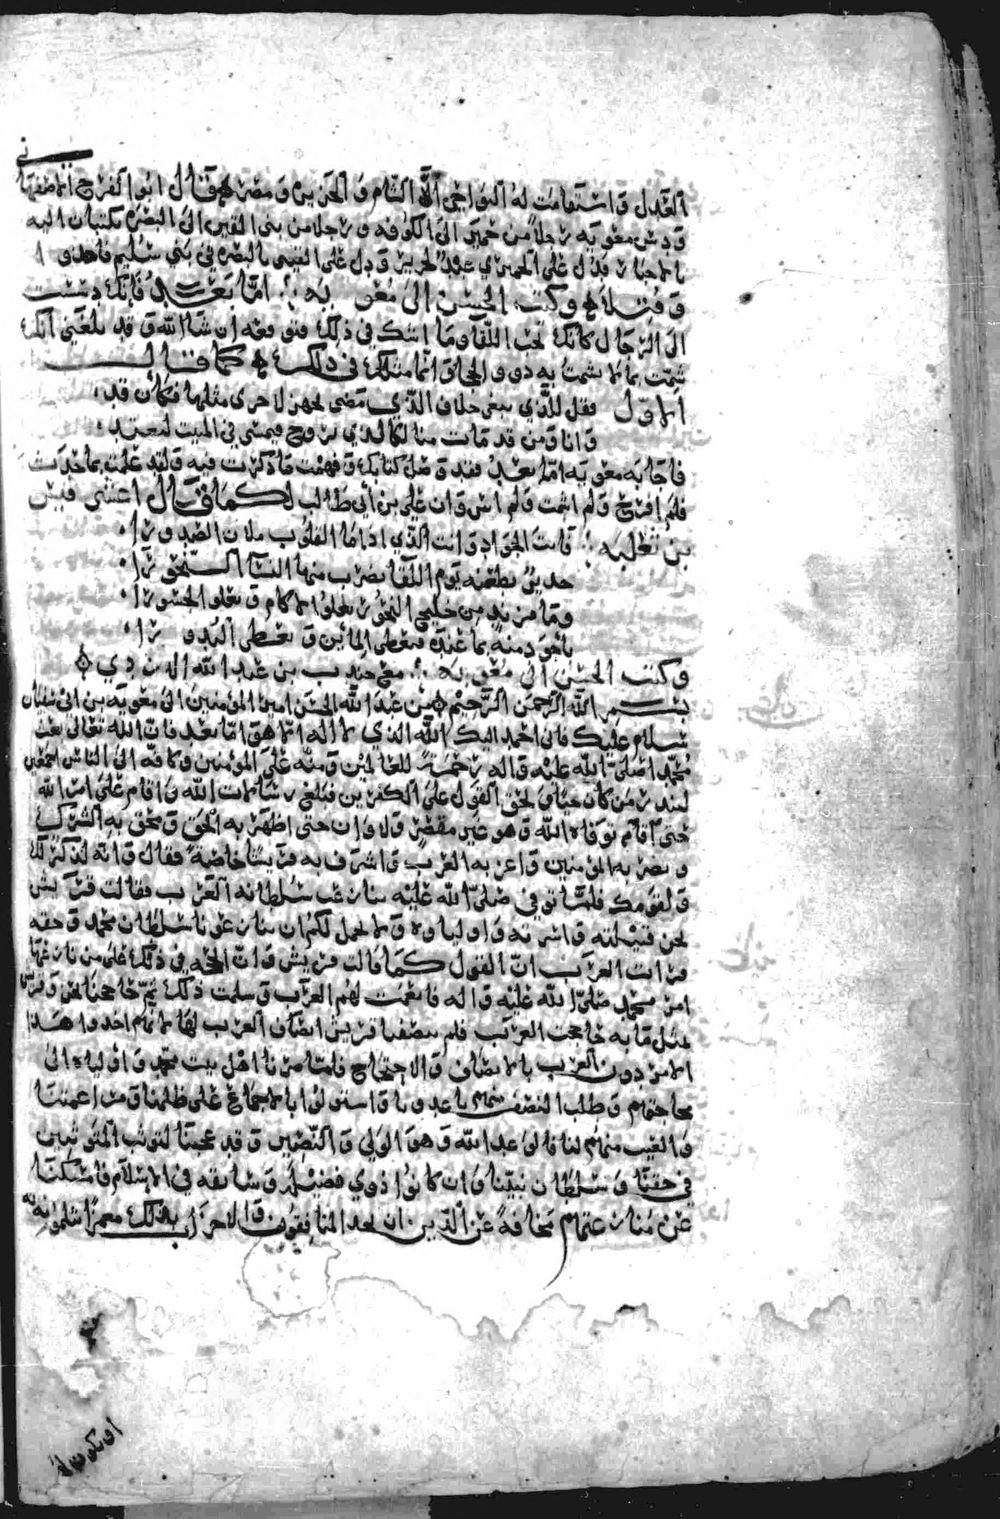 العدل واستقامت له النواحي الا الشام والجزيره ومصر فقال ابو الفرج الاصفهاني
ودس معويه رجلا من حمير الى الكوفه ورجلا من بني القين الى البصره يكتبان اليه
بالاخبار فدل على الحميري عند لحام جرير ودل على القيني بالبصره في بني سليم فاخذوا
وقتلا وكتب الحسن الى معويه اما بعد فانك دسست
الى الرجال كانك تحب اللقا وما اشك في ذلك فتوقعه ان شا الله وقد بلغني انك
شمت بما لا يشمت به ذوو الحجا وانما مثلك في ذلك كما قال
الاول فقل للذي يبغي خلاف الذي مضى تجهز لاخرى مثلها فكان قد
وانا ومن قد مات منا لكالذي يروح فيمسي في المبيت ليغتدي
فاجابه معويه اما بعد فقد وصل كتابك وفهمت ما ذكرت فيه ولقد علمت بما حدث
فلم افرح ولم اشمت ولم اس وان علي بن ابي طالب لكما قال اعشى قيس
بن ثعلبه فانت الجواد وانت الذي اذا ما القلوب ملان الصدورا
جدير بطعنه يوم اللقا يضرب منها النسا النحورا
وما مزيد من خليج البحور يعلو الاكام ويعلو الجسورا
باجود منه بما عنده فيعطي المائين ويعطي البدورا
وكتب الحسن الى معويه مع جندب بن عبد الله الازدي
بسم الله الرحمن الرحيم من عبد الله الحسن امير المؤمنين الى معويه بن ابي سفيان
سلام عليك فاني احمد اليك الله الذي لا اله الا هو اما بعد فان الله تعالى بعث
محمدا صلى الله عليه واله رحمة للعالمين ومنه على المؤمنين وكافه الى الناس اجمعين
لينذر من كان حيا ويحق القول على الكفرين فبلغ رسالات الله واقام على امر الله
حتى توفاه الله وهو غير مقصر ولا وان حتى اظهر به الحق ومحق به الشرك
ونصر به المؤمنين واعز به العرب واشرف به قريشا خاصة فقال وانه لذكر لك
ولقومك فلما توفي صلى الله عليه تنازعت سلطانه العرب فقالت قريش
نحن قبيلته واسرته واولياوه ولا يحل لكم ان تنازعونا سلطان محمد وحقه
فرات العرب ان القول كما قالت قريش وان الحجه في ذلك على من نازعها
امر محمد صلى الله عليه واله فانعمت لهم العرب وسلمت ذلك ثم حاججنا نحن قريشا
بمثل ما به حاججت العرب فلم تنصفنا قريش انصاف العرب لها انهم اخذوا هذا
الامر دون العرب بالانصاف والاحتجاج فلما صرنا اهل بيت محمد واولياه الى
محاجتهم وطلب النصف منهم باعدونا واستولوا بالاجماع على ظلمنا ومراغمتنا
والعيب منهم لنا فالموعد الله وهو الولي والنصير وقد عجبنا لتوثب المتوثبين
في حقنا وسلطان نبينا وان كانوا ذوي فضيله وسابقه في الاسلام فامسكنا
عن منازعتهم مخافة على الدين ان يجد المنافقون والاحزاب بذلك مغمزا يثلمونه به
او يكون لهم